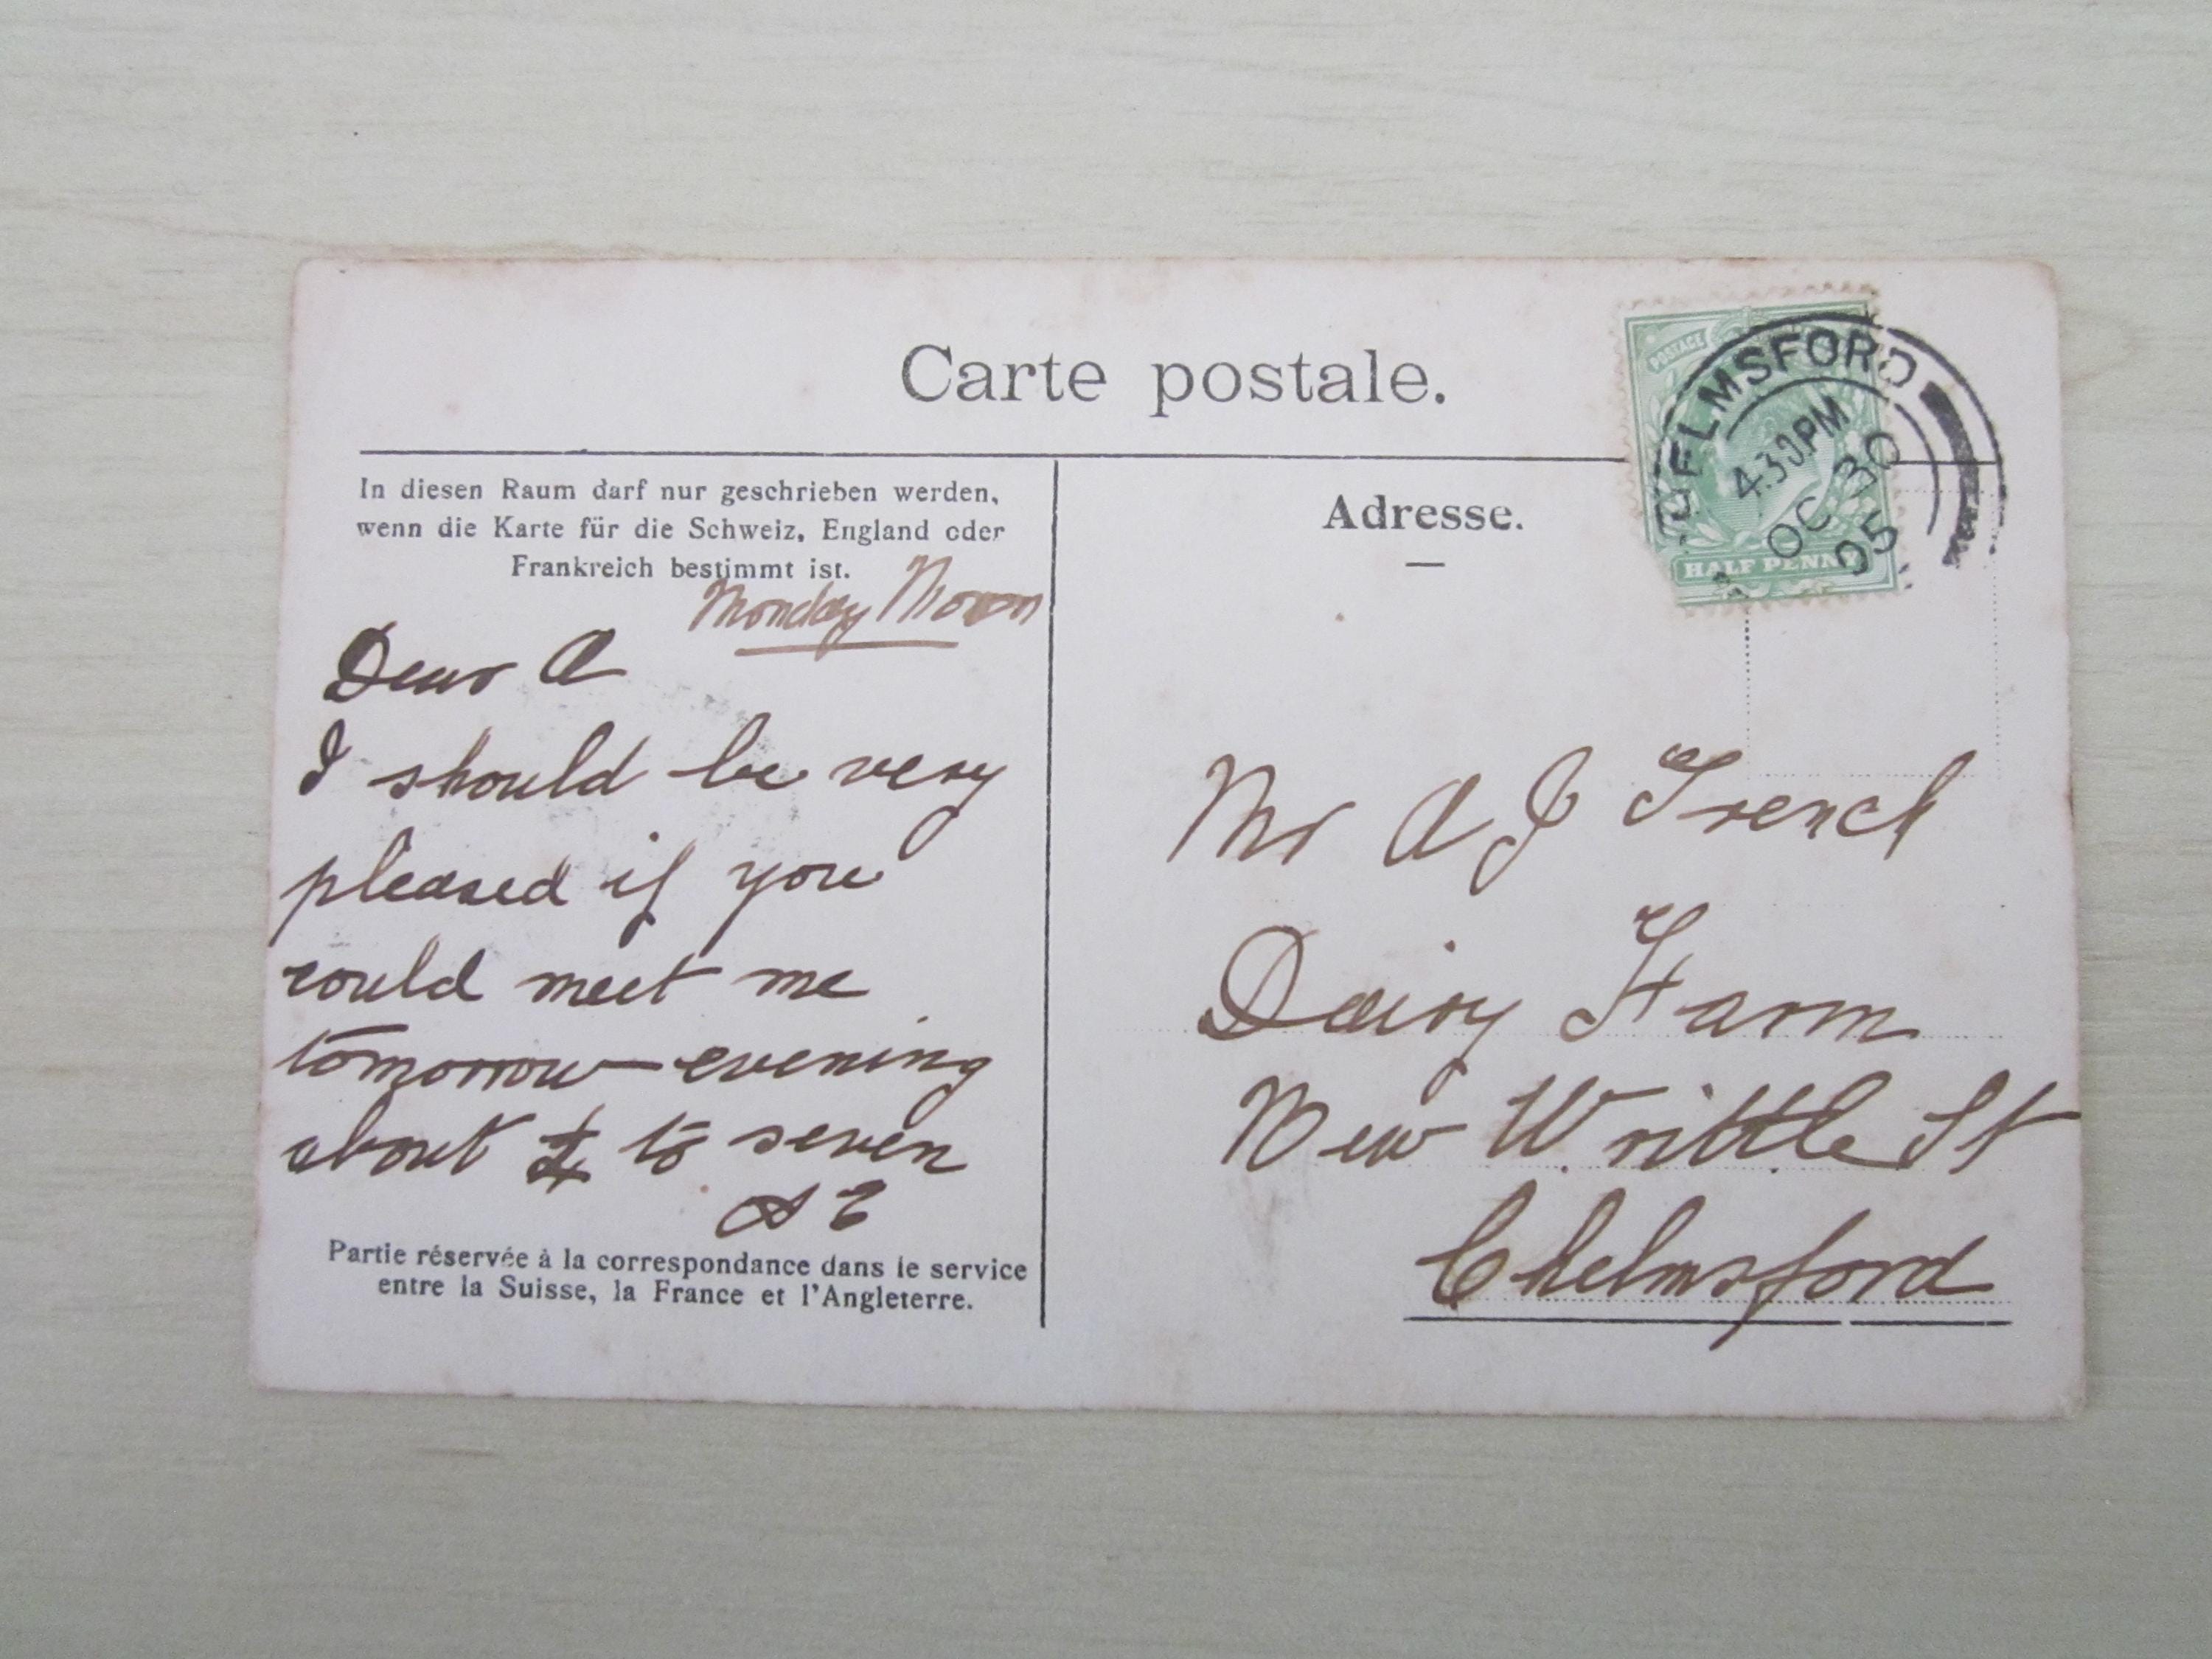 Carte postale.
In diesen Raum darf nur geschrieben werden,
wenn die Karte für die Schweiz, England oder
Frankreich bestimmt ist.
Monday Morn
Dear A
I should be very
pleased if you
could meet me
tomorrow evening
about ¼ to seven
A E
Partie réservée à la correspondance dans le service
entre la Suisse, la France et l'Angleterre.
Adresse.
POSTAGE
HALF PENNY
CHELMSFORD
4.30PM
OC 30
05
Mr A J French
Dairy Farm
New Writtle St
Chelmsford